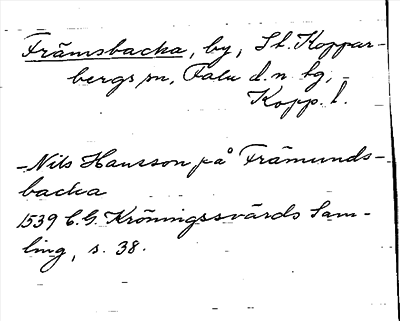 Främsbacka, by, St. Koppar-
bergs sn, Falu d.n. lg,
Kopp. l.
Nils Hansson på Främunds-
backa
1539 C.G. Kröningssvärds Sam-
ling, s. 38.